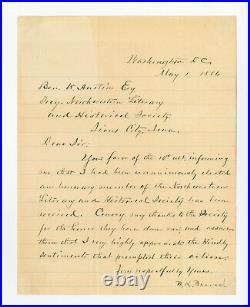 Washington D.C.
May 1, 1886
Ben. W. Austin Esq
Secy. Northwestern Literary
and Historical Society
Sioux City, Iowa.
Dear Sir:
Your favor of the 10th ult, informing
me that I had been unanimously elected
an honorary member of the Northwestern
Literary and Historical Society has been
received. Convey my thanks to the Society
for the honor they have done me, and assure
them that I very highly appreciate the kindly
sentiments that prompted their actions.
Very respectfully Yours,